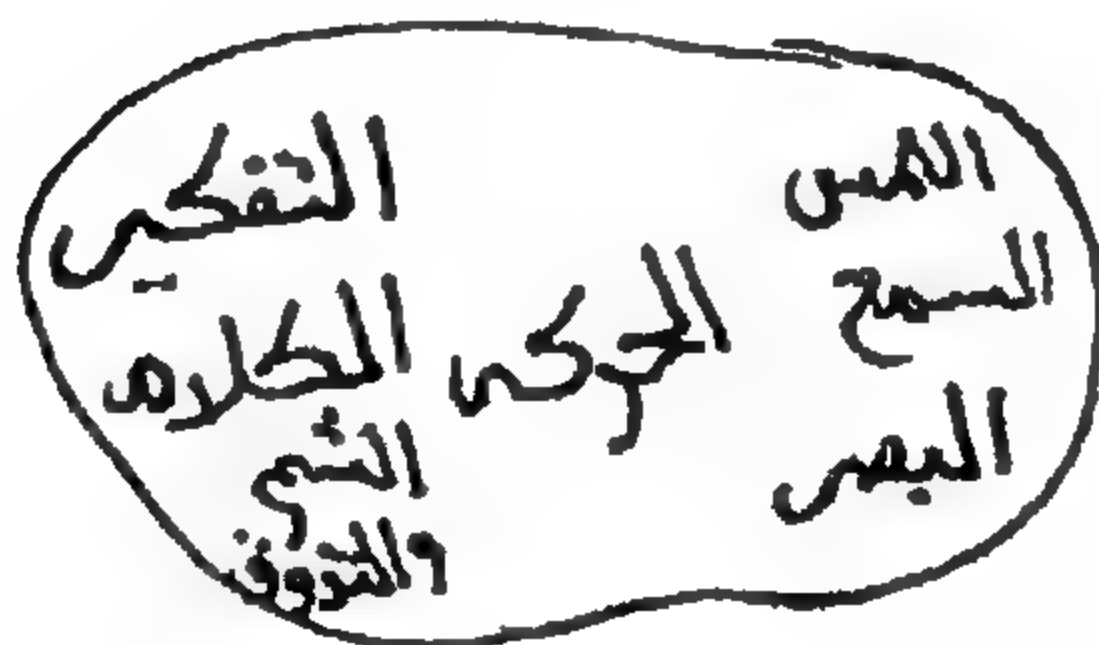 اللمس
السمع
البصر
الحركي
التفكير
الكلام
الشم
والتذوق